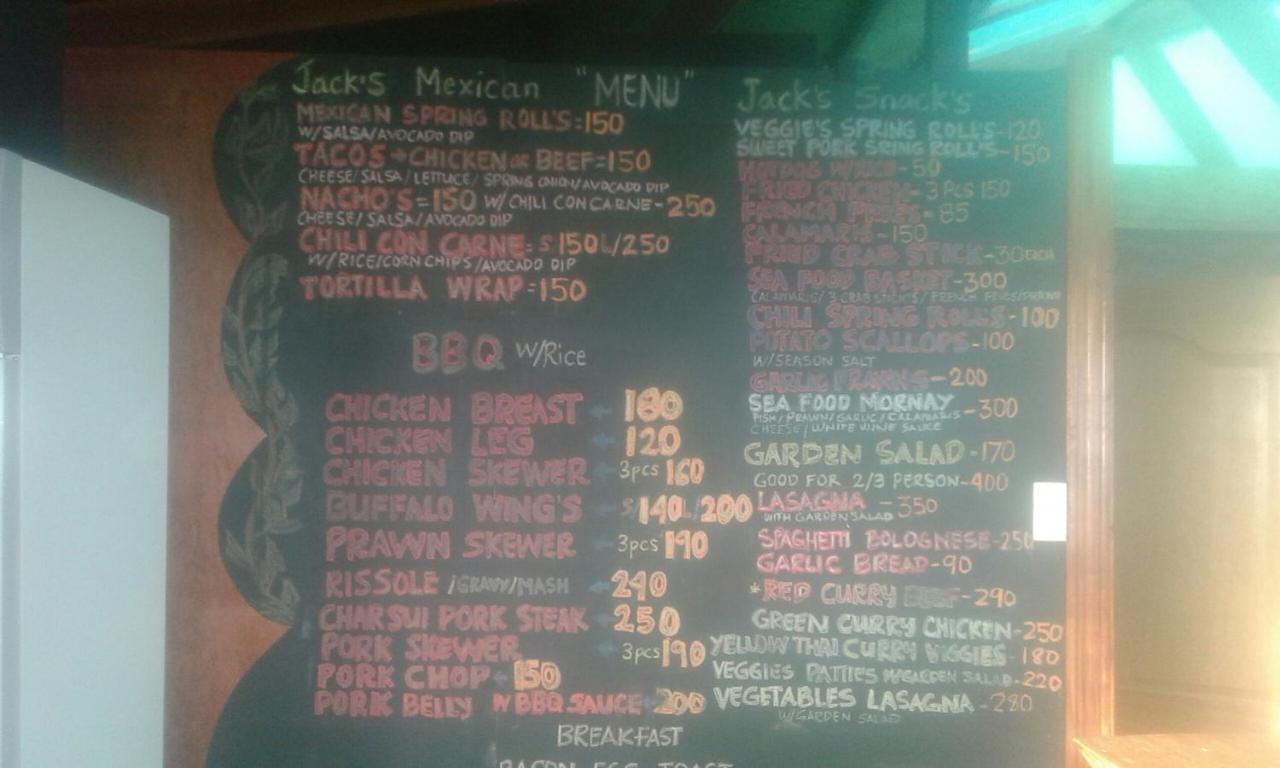 Jack's Mexican "MENU"
MEXICAN SPRING ROLL'S=150
W/SALSA/AVOCADO DIP
TACOS → CHICKEN OR BEEF=150
CHEESE/SALSA/LETTUCE/SPRING ONION/AVOCADO DIP
NACHO'S=150 W/CHILI CON CARNE-250
CHEESE/SALSA/AVOCADO DIP
CHILI CON CARNE=S150 L/250
W/RICE/CORN CHIPS/AVOCADO DIP
TORTILLA WRAP=150
BBQ W/Rice
CHICKEN BREAST 180
CHICKEN LEG 120
CHICKEN SKEWER 3pcs 160
BUFFALO WING'S S140 L/200
PRAWN SKEWER 3pcs 190
RISSOLE /GRAVY/MASH 240
CHARSUI PORK STEAK 250
PORK SKEWER 3pcs 190
PORK CHOP 150
PORK BELLY W BBQ SAUCE 200
BREAKFAST
BACON EGG TOAST
Jack's Snack's
VEGGIE'S SPRING ROLL'S-120
SWEET PORK SRING ROLL'S-150
-50
FRIED CHICKEN-3 PCS 150
FRENCH FRIES-85
CALAMARIS-150
FRIED CRAB STICK-30 EACH
SEA FOOD BASKET-300
CALAMARIS/3 CRAB STICK'S/FRENCH FRIES/PRAWN
CHILI SPRING ROLL'S-100
POTATO SCALLOPS-100
W/SEASON SALT
GARLIC PRAWNS-200
SEA FOOD MORNAY-300
FISH/PRAWN/GARLIC/CALAMARIS
CHEESE/WHITE WINE SAUCE
GARDEN SALAD-170
GOOD FOR 2/3 PERSON-400
LASAGNA -350
WITH GARDEN SALAD
SPAGHETTI BOLOGNESE-250
GARLIC BREAD-90
*RED CURRY BEEF-290
GREEN CURRY CHICKEN-250
YELLOW THAI CURRY VIGGIES-180
VEGGIES PATTIES W/GARDEN SALAD-220
VEGETABLES LASAGNA-280
W/GARDEN SALAD